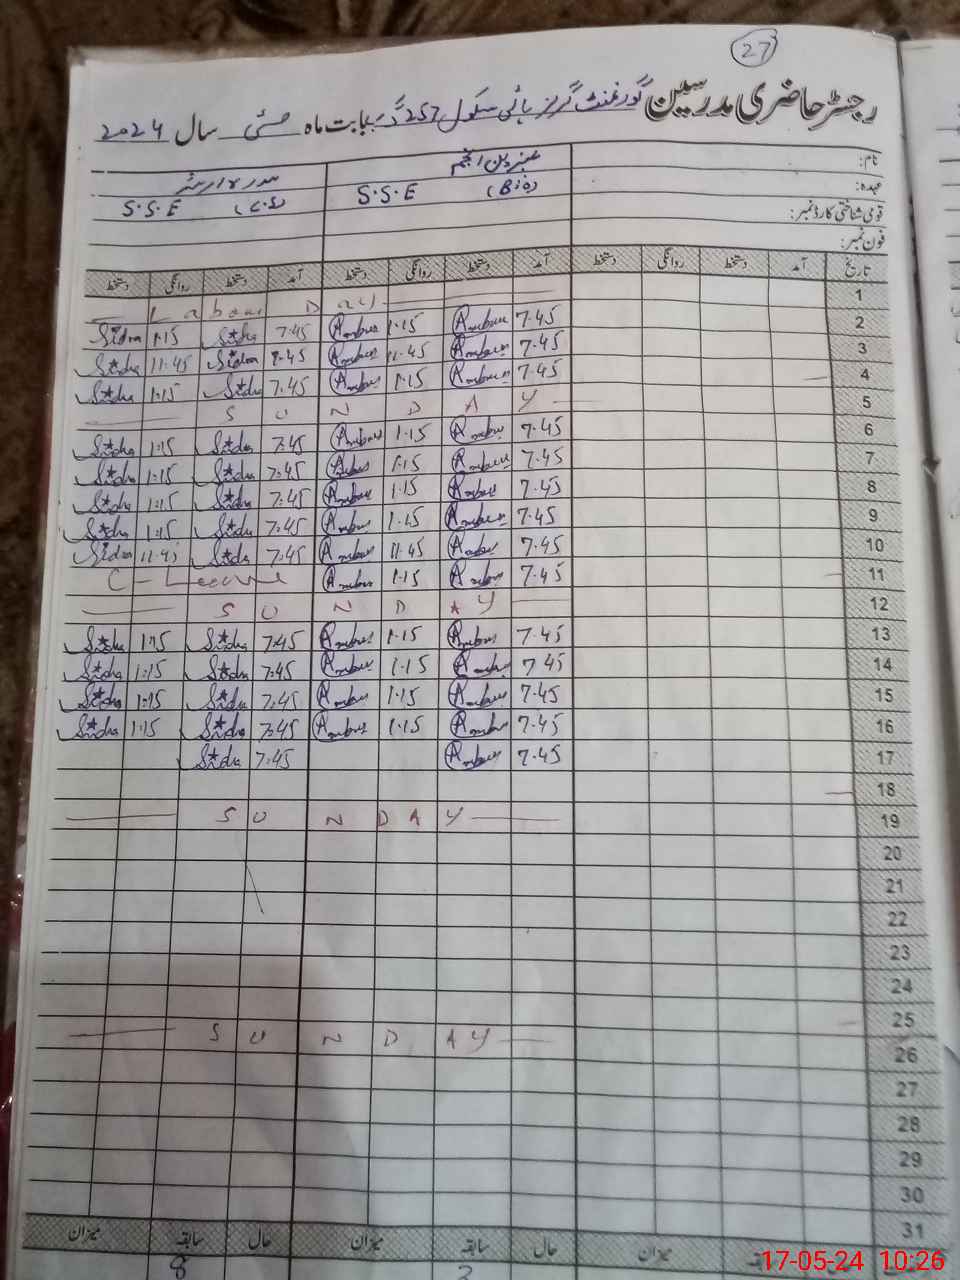 27
رجسٹر حاضری مدرسین گورنمنٹ گرلز ہائی سکول 257 گ ب بابت ماہ مئی سال 2024
نام: عنبرین انجم
عہدہ: S.S.E (Bio) S.S.E (C.S)
قومی شناختی کارڈ نمبر:
فون نمبر:
تاریخ آمد دستخط روانگی دستخط آمد دستخط روانگی دستخط آمد دستخط روانگی دستخط
1 Labour Day
2 7.45 Ambreen 1.15 Ambreen 7.45 Sidra 1.15 Sidra
3 7.45 11.45 Sidra 11.45 Sidra
4 7.45 1.15 7.45 Sidra 1.15 Sidra
5 SUNDAY
6 7.45 1.15 7.45 Sidra 1:15 Sidra
7 7.45 1.15 7.45 Sidra 1:15 Sidra
8 7.45 1.15 7.45 Sidra 1:15 Sidra
9 7.45 1.15 7.45 Sidra 1:15 Sidra
10 7.45 11.45 7.45 Sidra 11.45 Sidra
11 7.45 1.15 C-Leave
12 SUNDAY
13 7.45 1.15 7.45 Sidra 1:15 Sidra
14 7 45 1.15 7.45 Sidra 1:15 Sidra
15 7.45 1.15 7.45 Sidra 1:15 Sidra
16 7.45 1.15 7.45 Sidra 1:15 Sidra
17 7.45 7.45 Sidra
18
19 SUNDAY
20
21
22
23
24
25
26 SUNDAY
27
28
29
30
31
حال سابقہ میزان حال سابقہ میزان
8
17-05-24 10:26